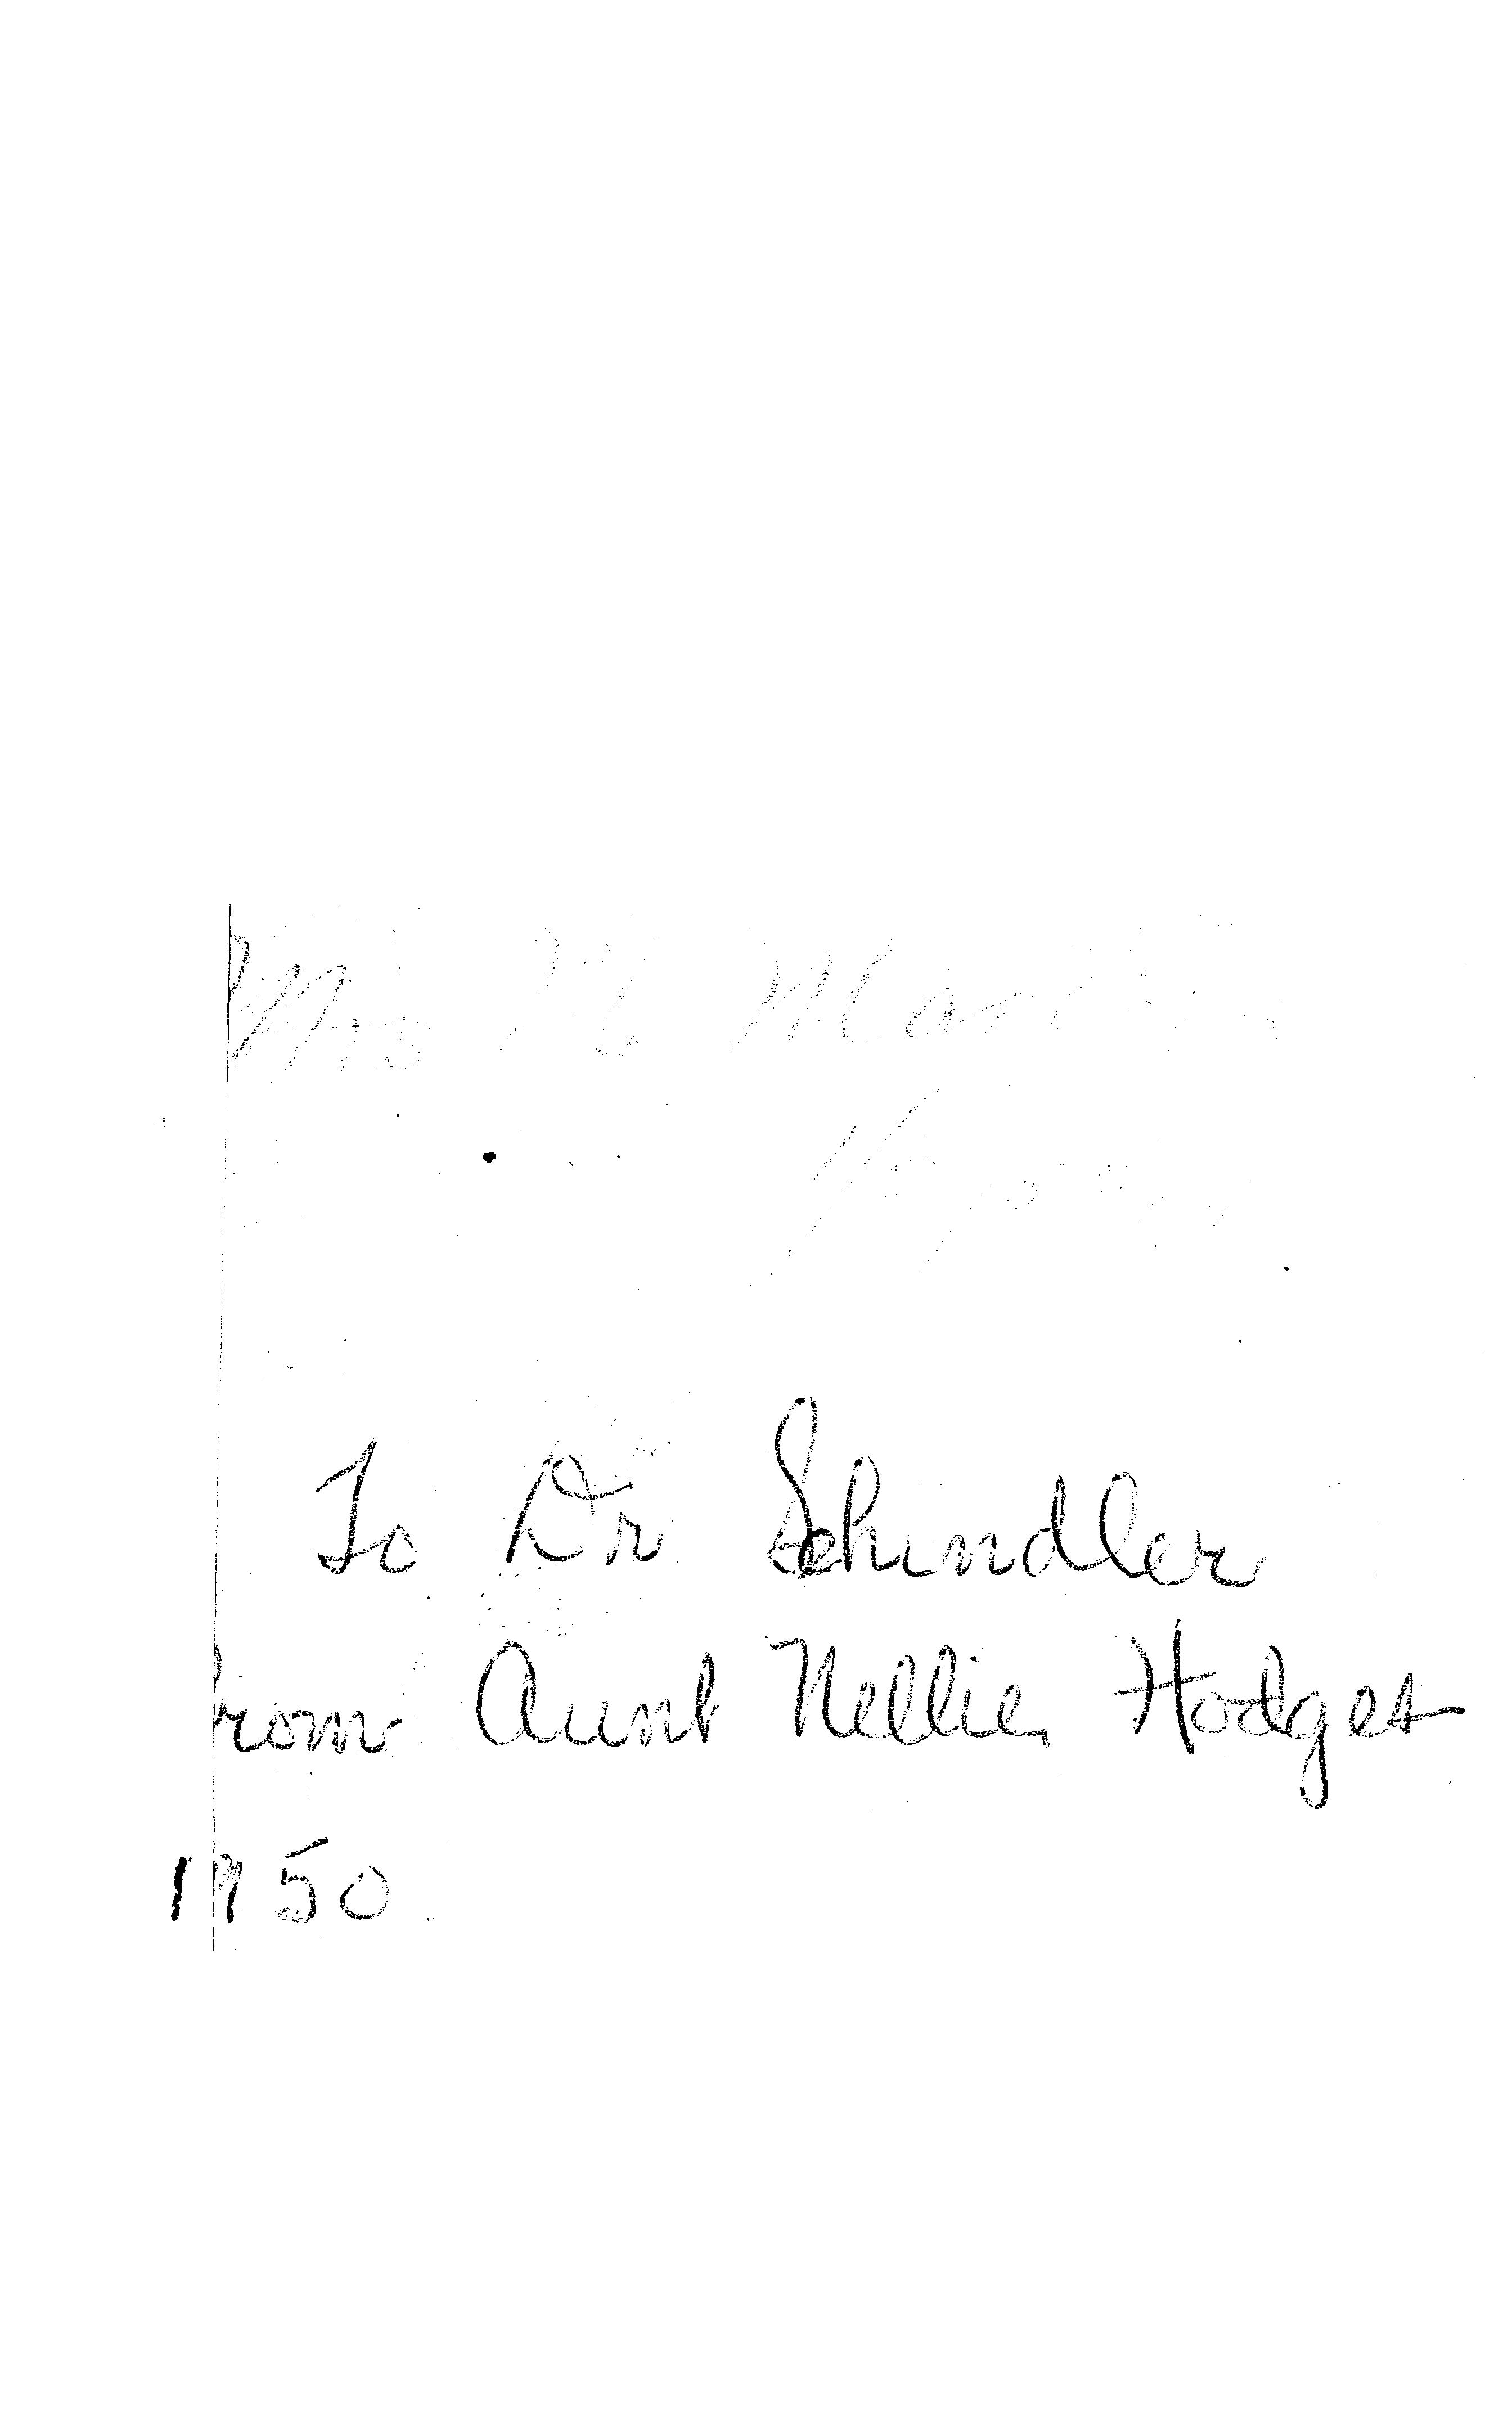 Mrs
To Dr Schindler
from Aunt Nellie Hodges
1950